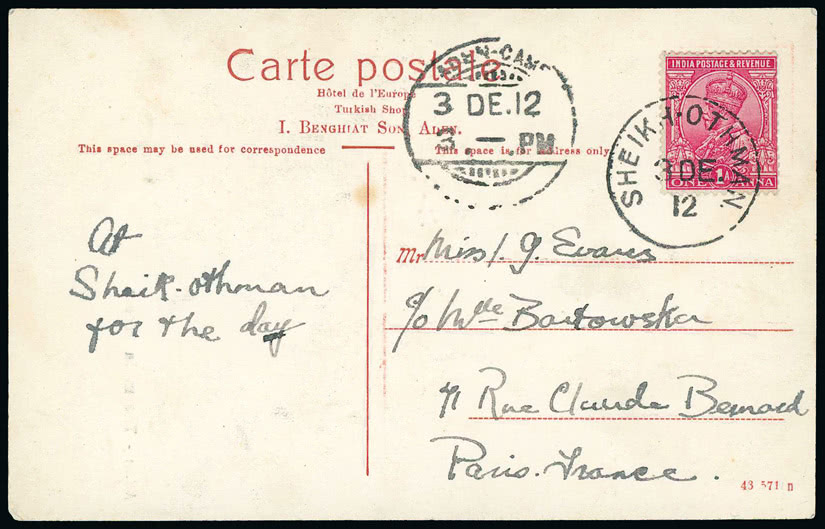 Carte postale
Hôtel de l'Europe
Turkish Shop
I. BENGHIAT SON, ADEN.
This space may be used for correspondence
This space is for address only
ADEN-CAMP
3 DE.12
3.— .PM
INDIA POSTAGE & REVENUE
ONE 1 ANNA
SHEIKH-OTHMAN.
3 DE.
12
At
Sheik-othman
for the day
Mr Miss I. G. Evans
c/o Mlle Bartowska
Rue Claude Bernard
Paris. France.
43 571 n